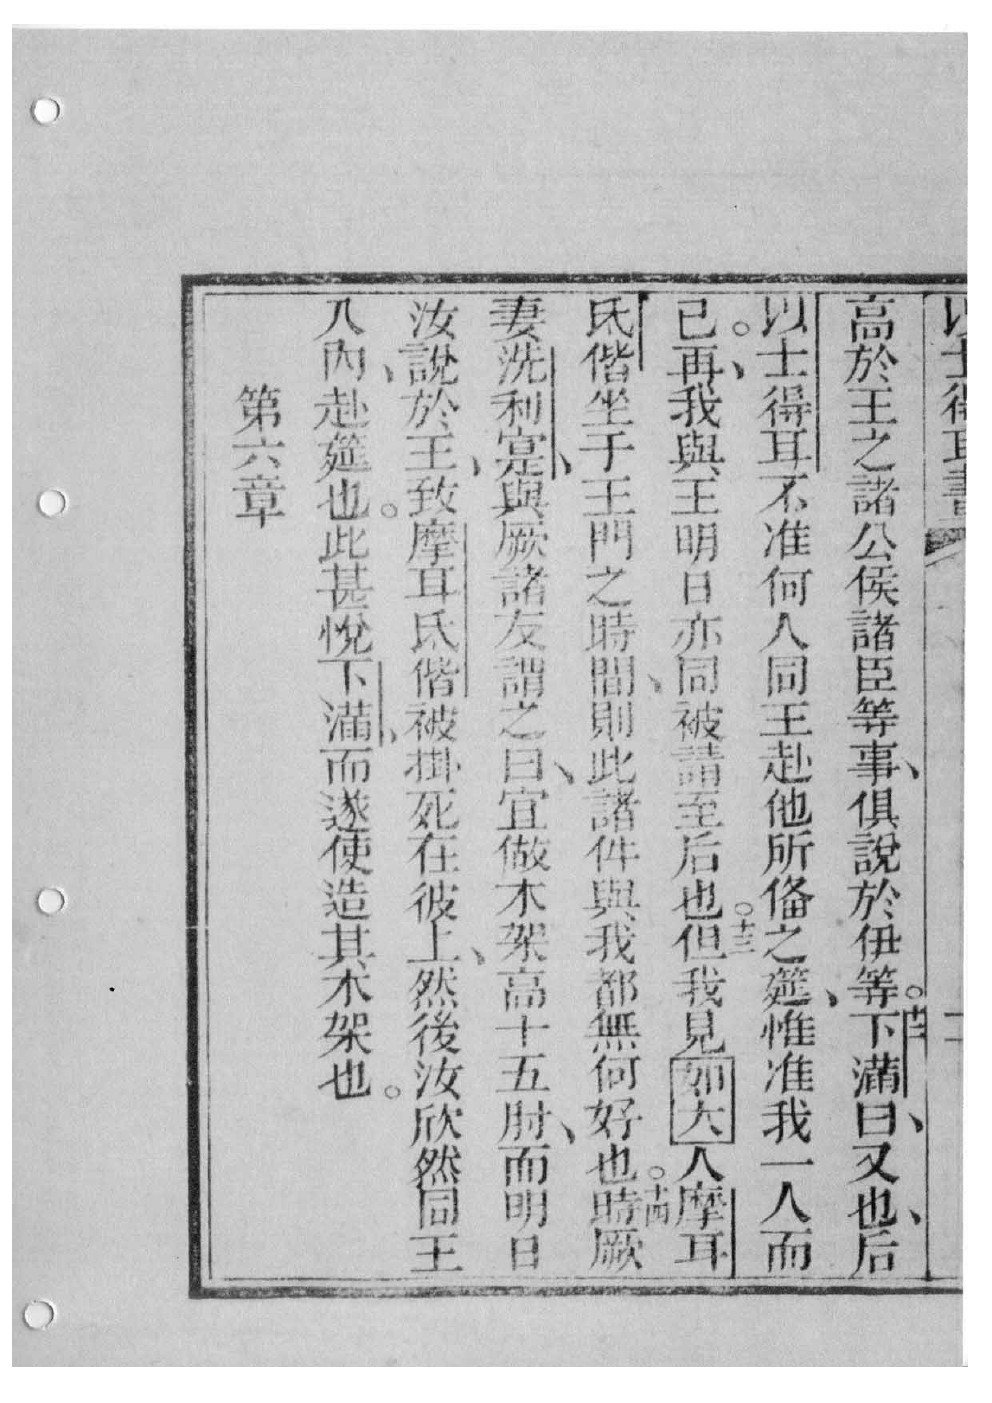 以士得耳書
高於王之諸公侯諸臣等事、俱說於伊等。十二下滿曰、又也、后
以士得耳不准何人同王赴他所俻之筵、惟准我一人而
已。再、我與王明日亦同被請至后也。十三但我見如大人摩耳
氐偕坐于王門之時間、則此諸件與我都無何好也。十四時厥
妻洗利寔、與厥諸友謂之曰、宜做木架高十五肘、而明日
汝說於王、致摩耳氐偕被掛死在彼上、然後汝欣然同王
入內、赴筵也。此甚悅下滿、而遂使造其木架也。
第六章